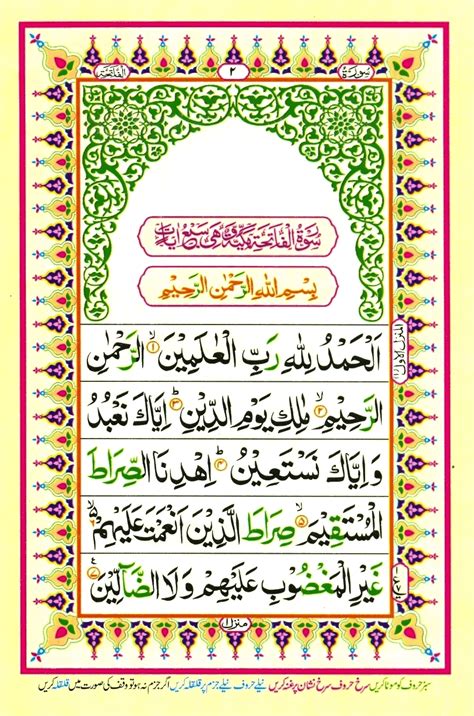 سورة ٢ الفاتحة
سُوْرَةُ الْفَاتِحَةِ مَكِّيَّةٌ وَّهِىَ سَبْعُ اٰيَاتٍ
بِسْمِ اللّٰهِ الرَّحْمٰنِ الرَّحِيْمِ
اَلْحَمْدُ لِلّٰهِ رَبِّ الْعٰلَمِيْنَ ۙ‏﴿١﴾ الرَّحْمٰنِ
الرَّحِيْمِ ۙ‏﴿٢﴾ مٰلِكِ يَوْمِ الدِّيْنِ ؕ‏﴿٣﴾ اِيَّاكَ نَعْبُدُ
وَاِيَّاكَ نَسْتَعِيْنُ ؕ‏﴿٤﴾ اِهْدِنَا الصِّرَاطَ
الْمُسْتَقِيْمَ ۙ‏﴿٥﴾ صِرَاطَ الَّذِيْنَ اَنْعَمْتَ عَلَيْهِمْ ۙ۬‏﴿٦﴾
غَيْرِ الْمَغْضُوْبِ عَلَيْهِمْ وَلَا الضَّآلِّيْنَ‏﴿٧﴾
المنزل الاول ١
منزل ١
سبز حروف کو موٹا کریں سرخ حروف سرخ نشان پر غنہ کریں نیلے حروف نیلے جزم پر قلقلہ کریں اگر جزم نہ ہو تو وقف کی صورت میں قلقلہ کریں